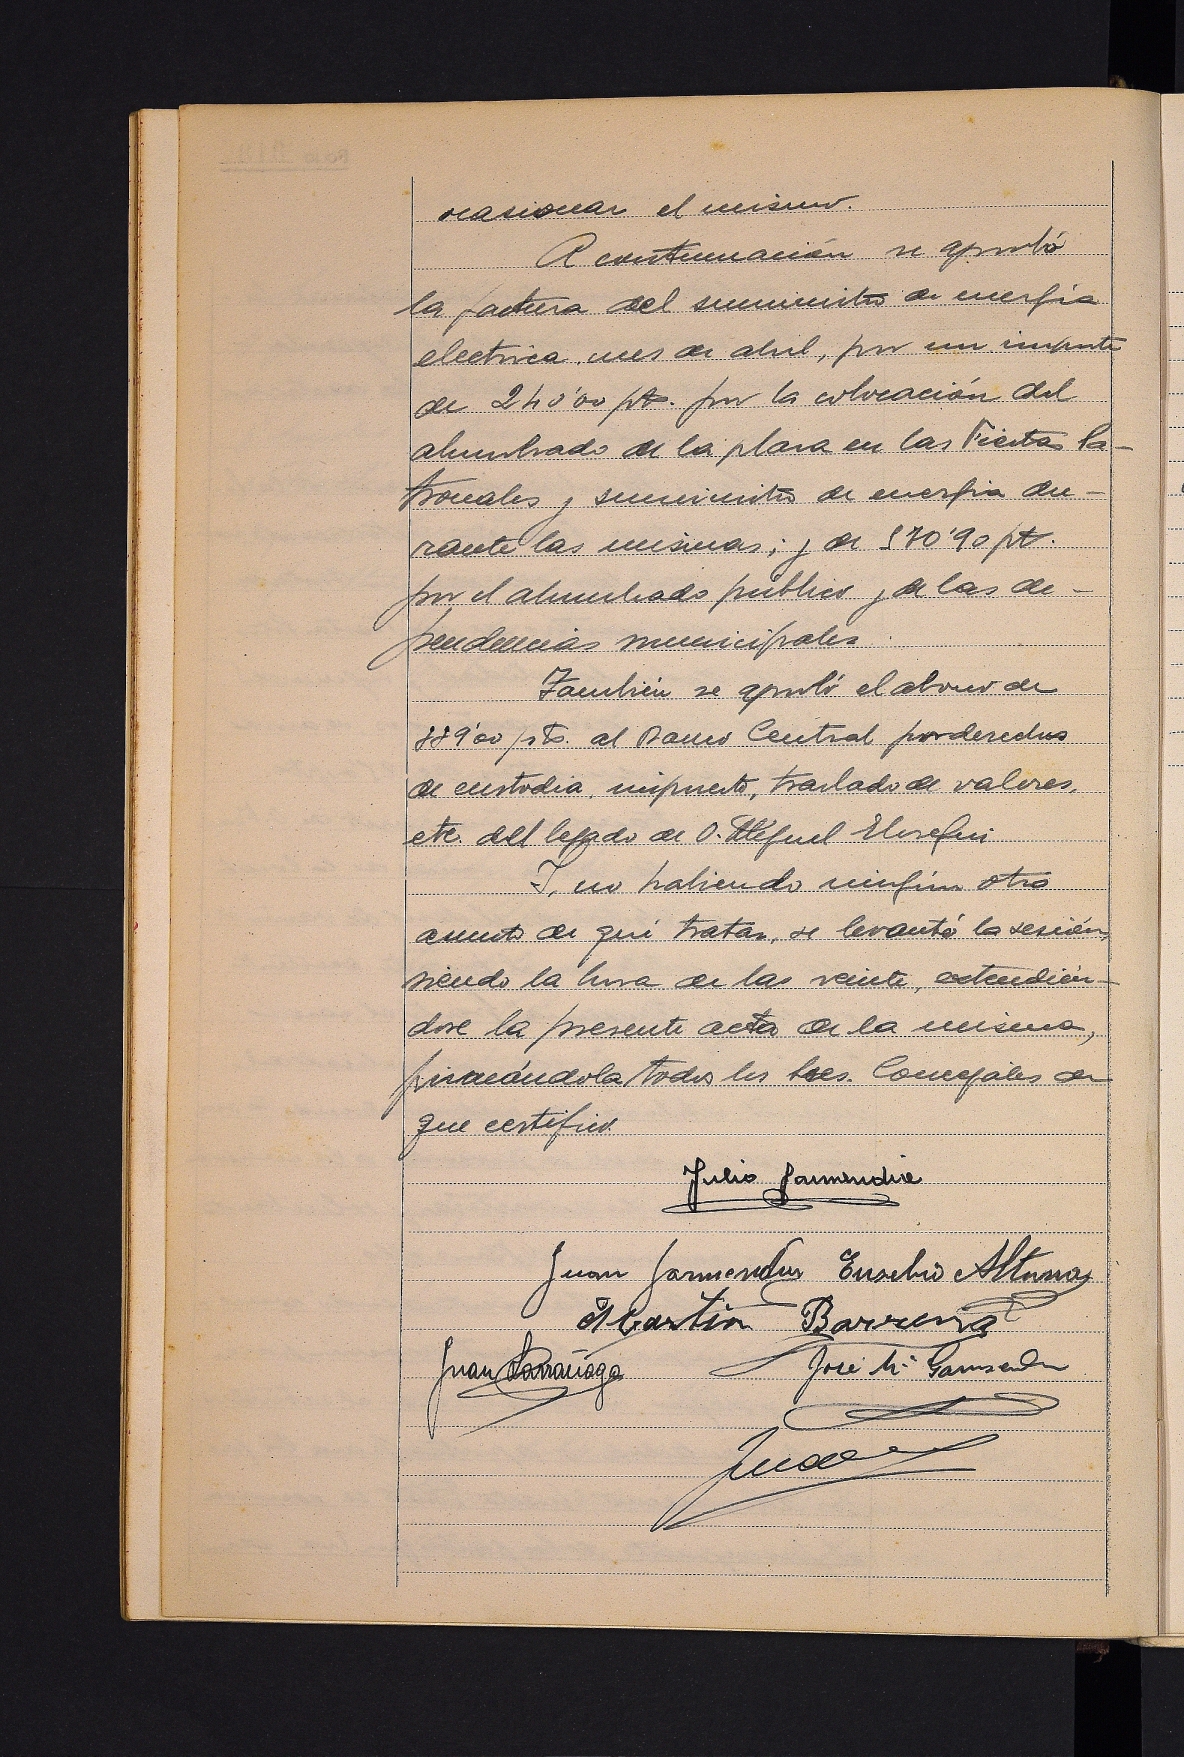 ocasionar el mismo.
A continuación se aprobó
la factura del suministro de energía
electrica, mes de abril, por un importe
de 240'00 pts. por la colocación del
alumbrado de la plaza en las Fiestas Pa-
tronales y suministro de energia du-
rante las mismas; y de 570'90 pts.
por el alumbrado público y de las de-
pendencias municipales.
También se aprobó el abono de
pts. al Banco Central por derechos
de custodia, impuesto, traslado de valores,
etc. del legado de D. Miguel Elosegui
Y, no habiendo ningún otro
asunto de qué tratar, se levantó la sesión,
siendo la hora de las veinte, extendién-
dose la presente acta de la misma,
firmándola todos los Sres. Concejales de
que certifico.
Julio Garmendia
Juan Garmendia Eusebio Altuna
Martin Barrena
Juan Larrañaga José Mª Garmendia